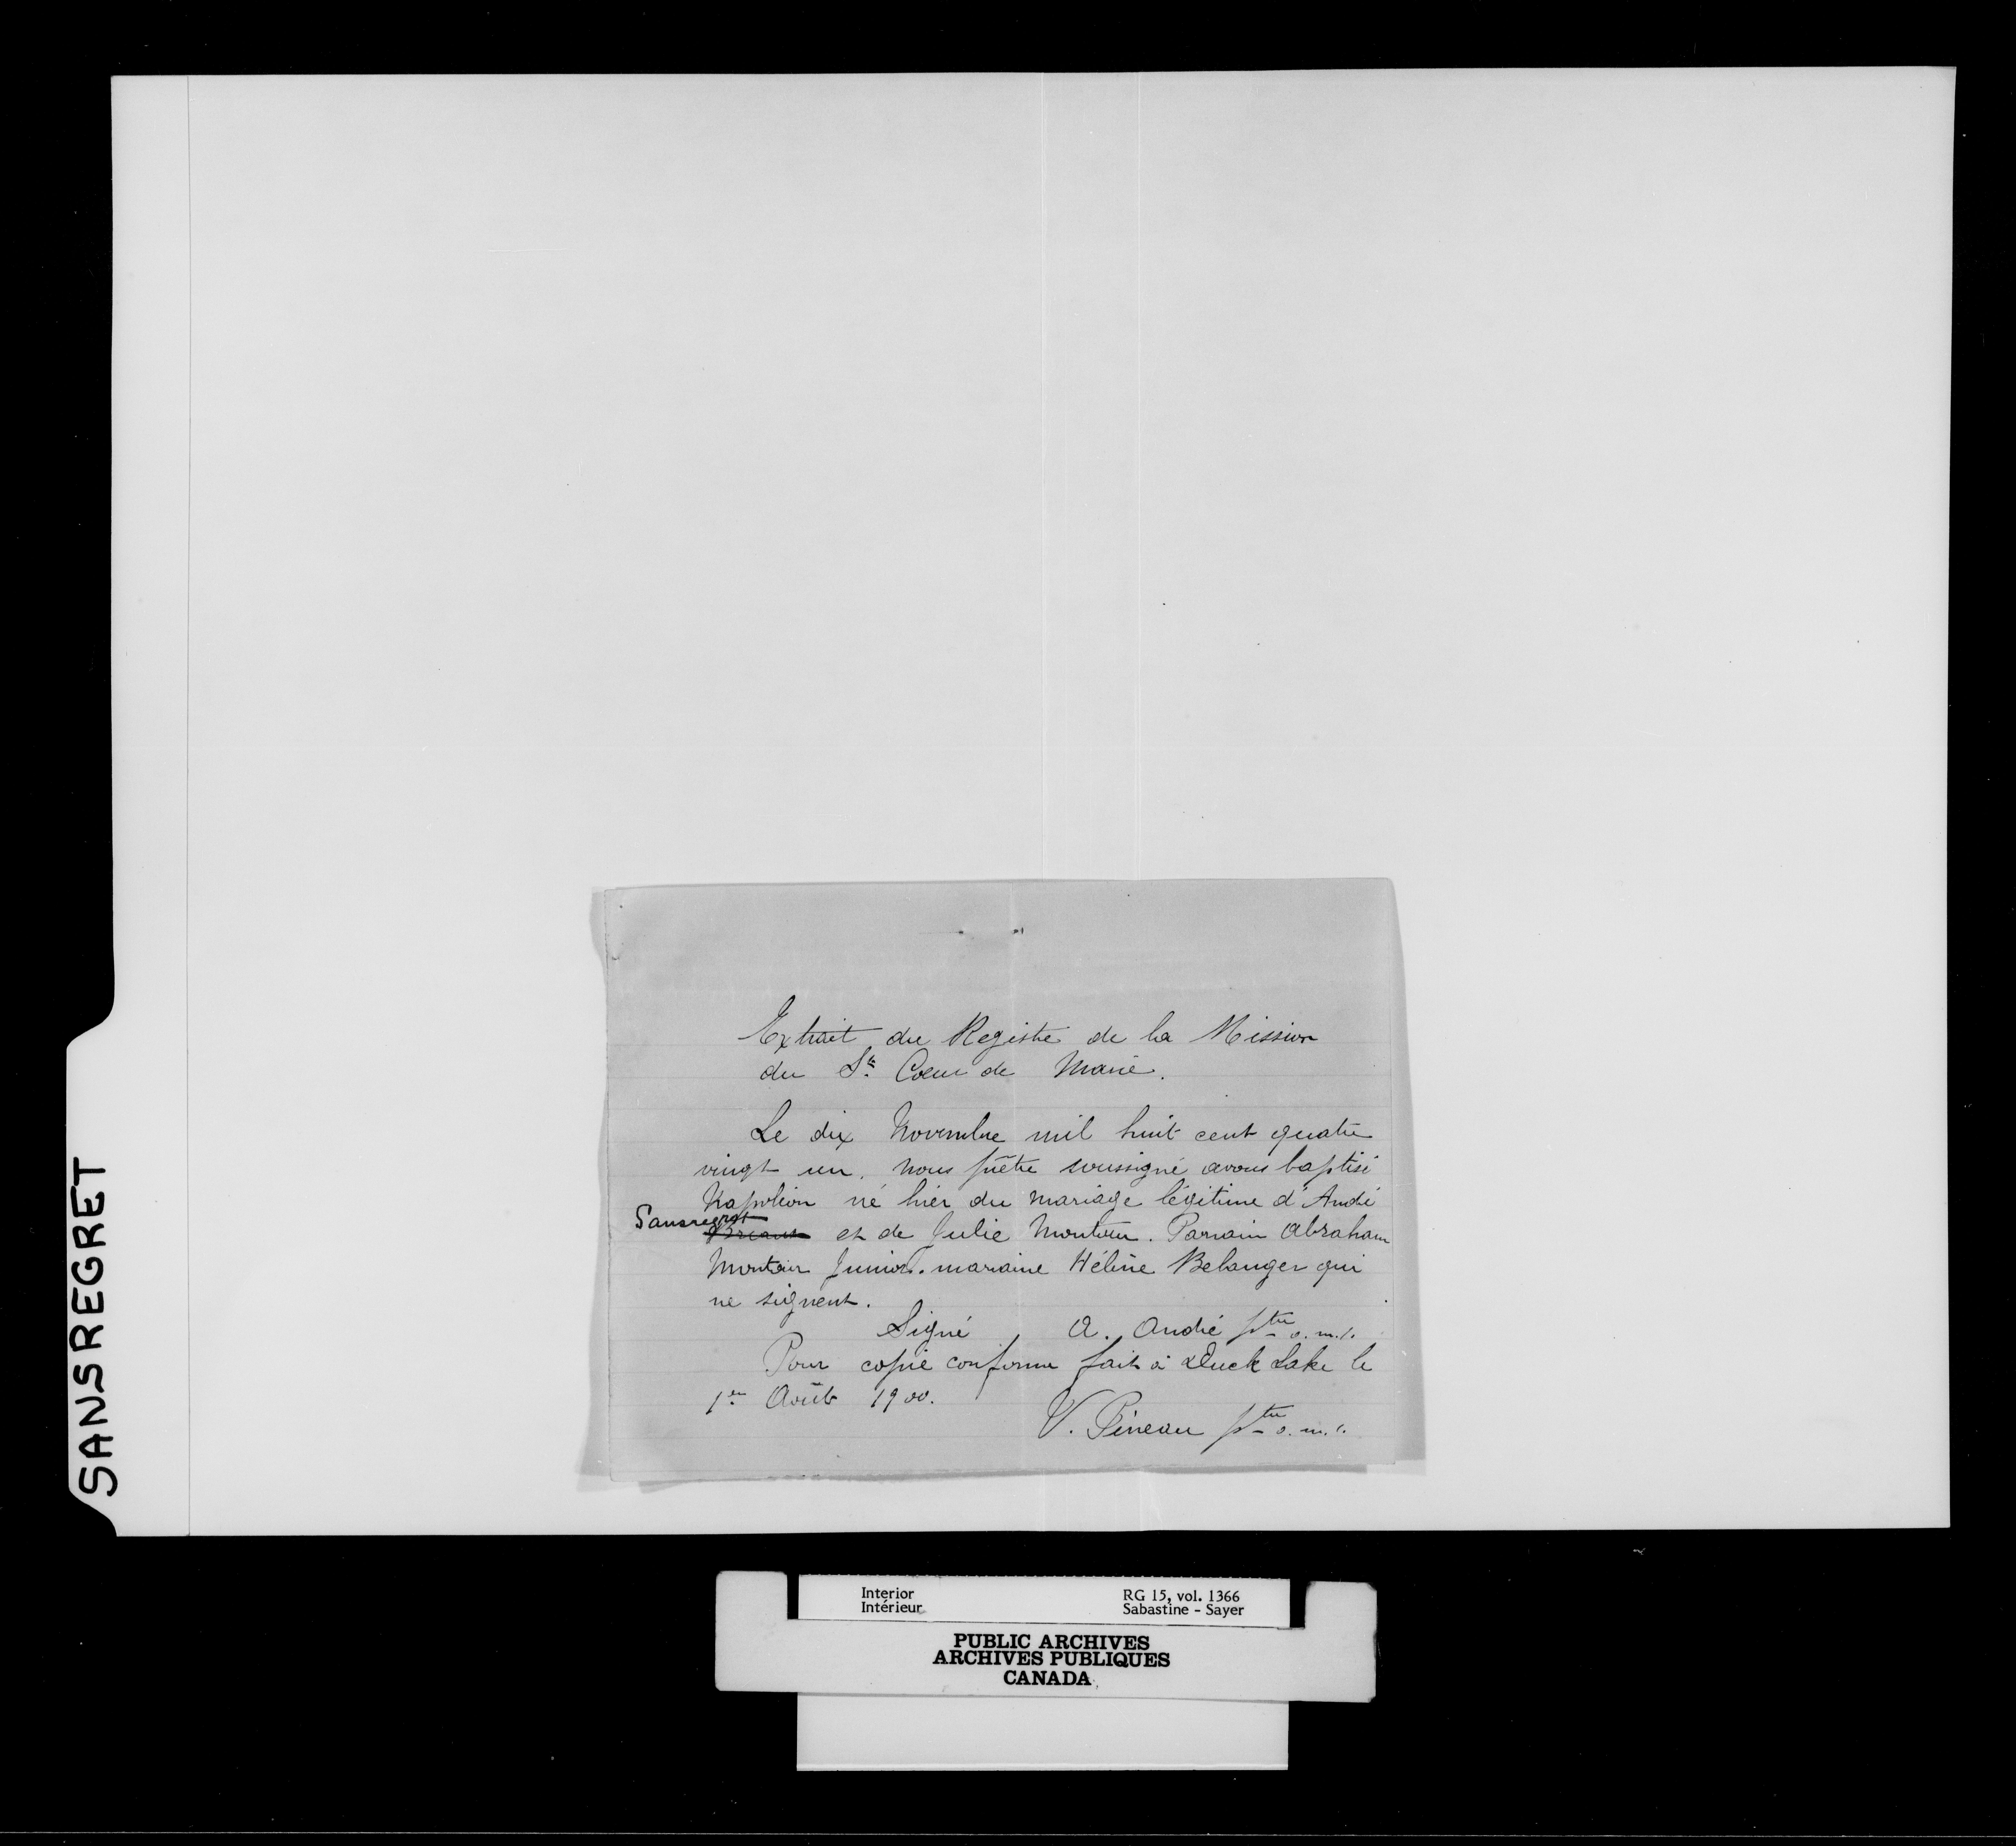 SANSREGRET
Extrait du Registre de la Mission
du St Coeur de Marie.
Le dix Novembre mil huit cent quatre
vingt un. nous prêtre soussigné avons baptisé
Napoléon né hier du mariage légitime d'André
Sansregret
et de Julie Montour. Parrain Abraham
Montour Junior. maraine Hélène Belanger qui
ne signent.
Signé A. André ptre o.m.i.
Pour copie conforme fait à Duck Lake le
1er Août 1900.
V. Pineau ptre o.m.i.
Interior RG 15, vol. 1366
Intérieur Sabastine - Sayer
PUBLIC ARCHIVES
ARCHIVES PUBLIQUES
CANADA